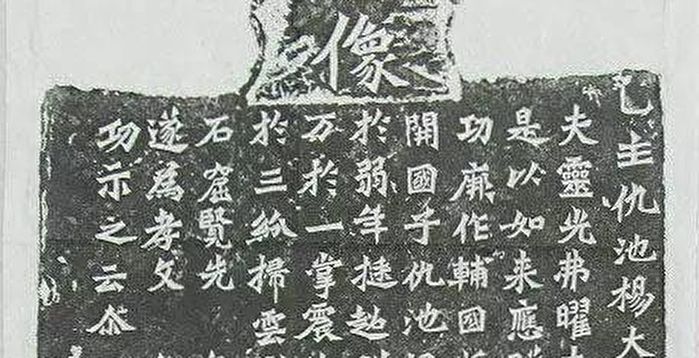 像
邑主仇池楊大
夫靈光弗曜
是以如来應
功庿作輔國
開國子仇池
於弱年挺超
万於一掌震
於三紛掃雲
石窟覽先
遂為孝文
功示之云尒